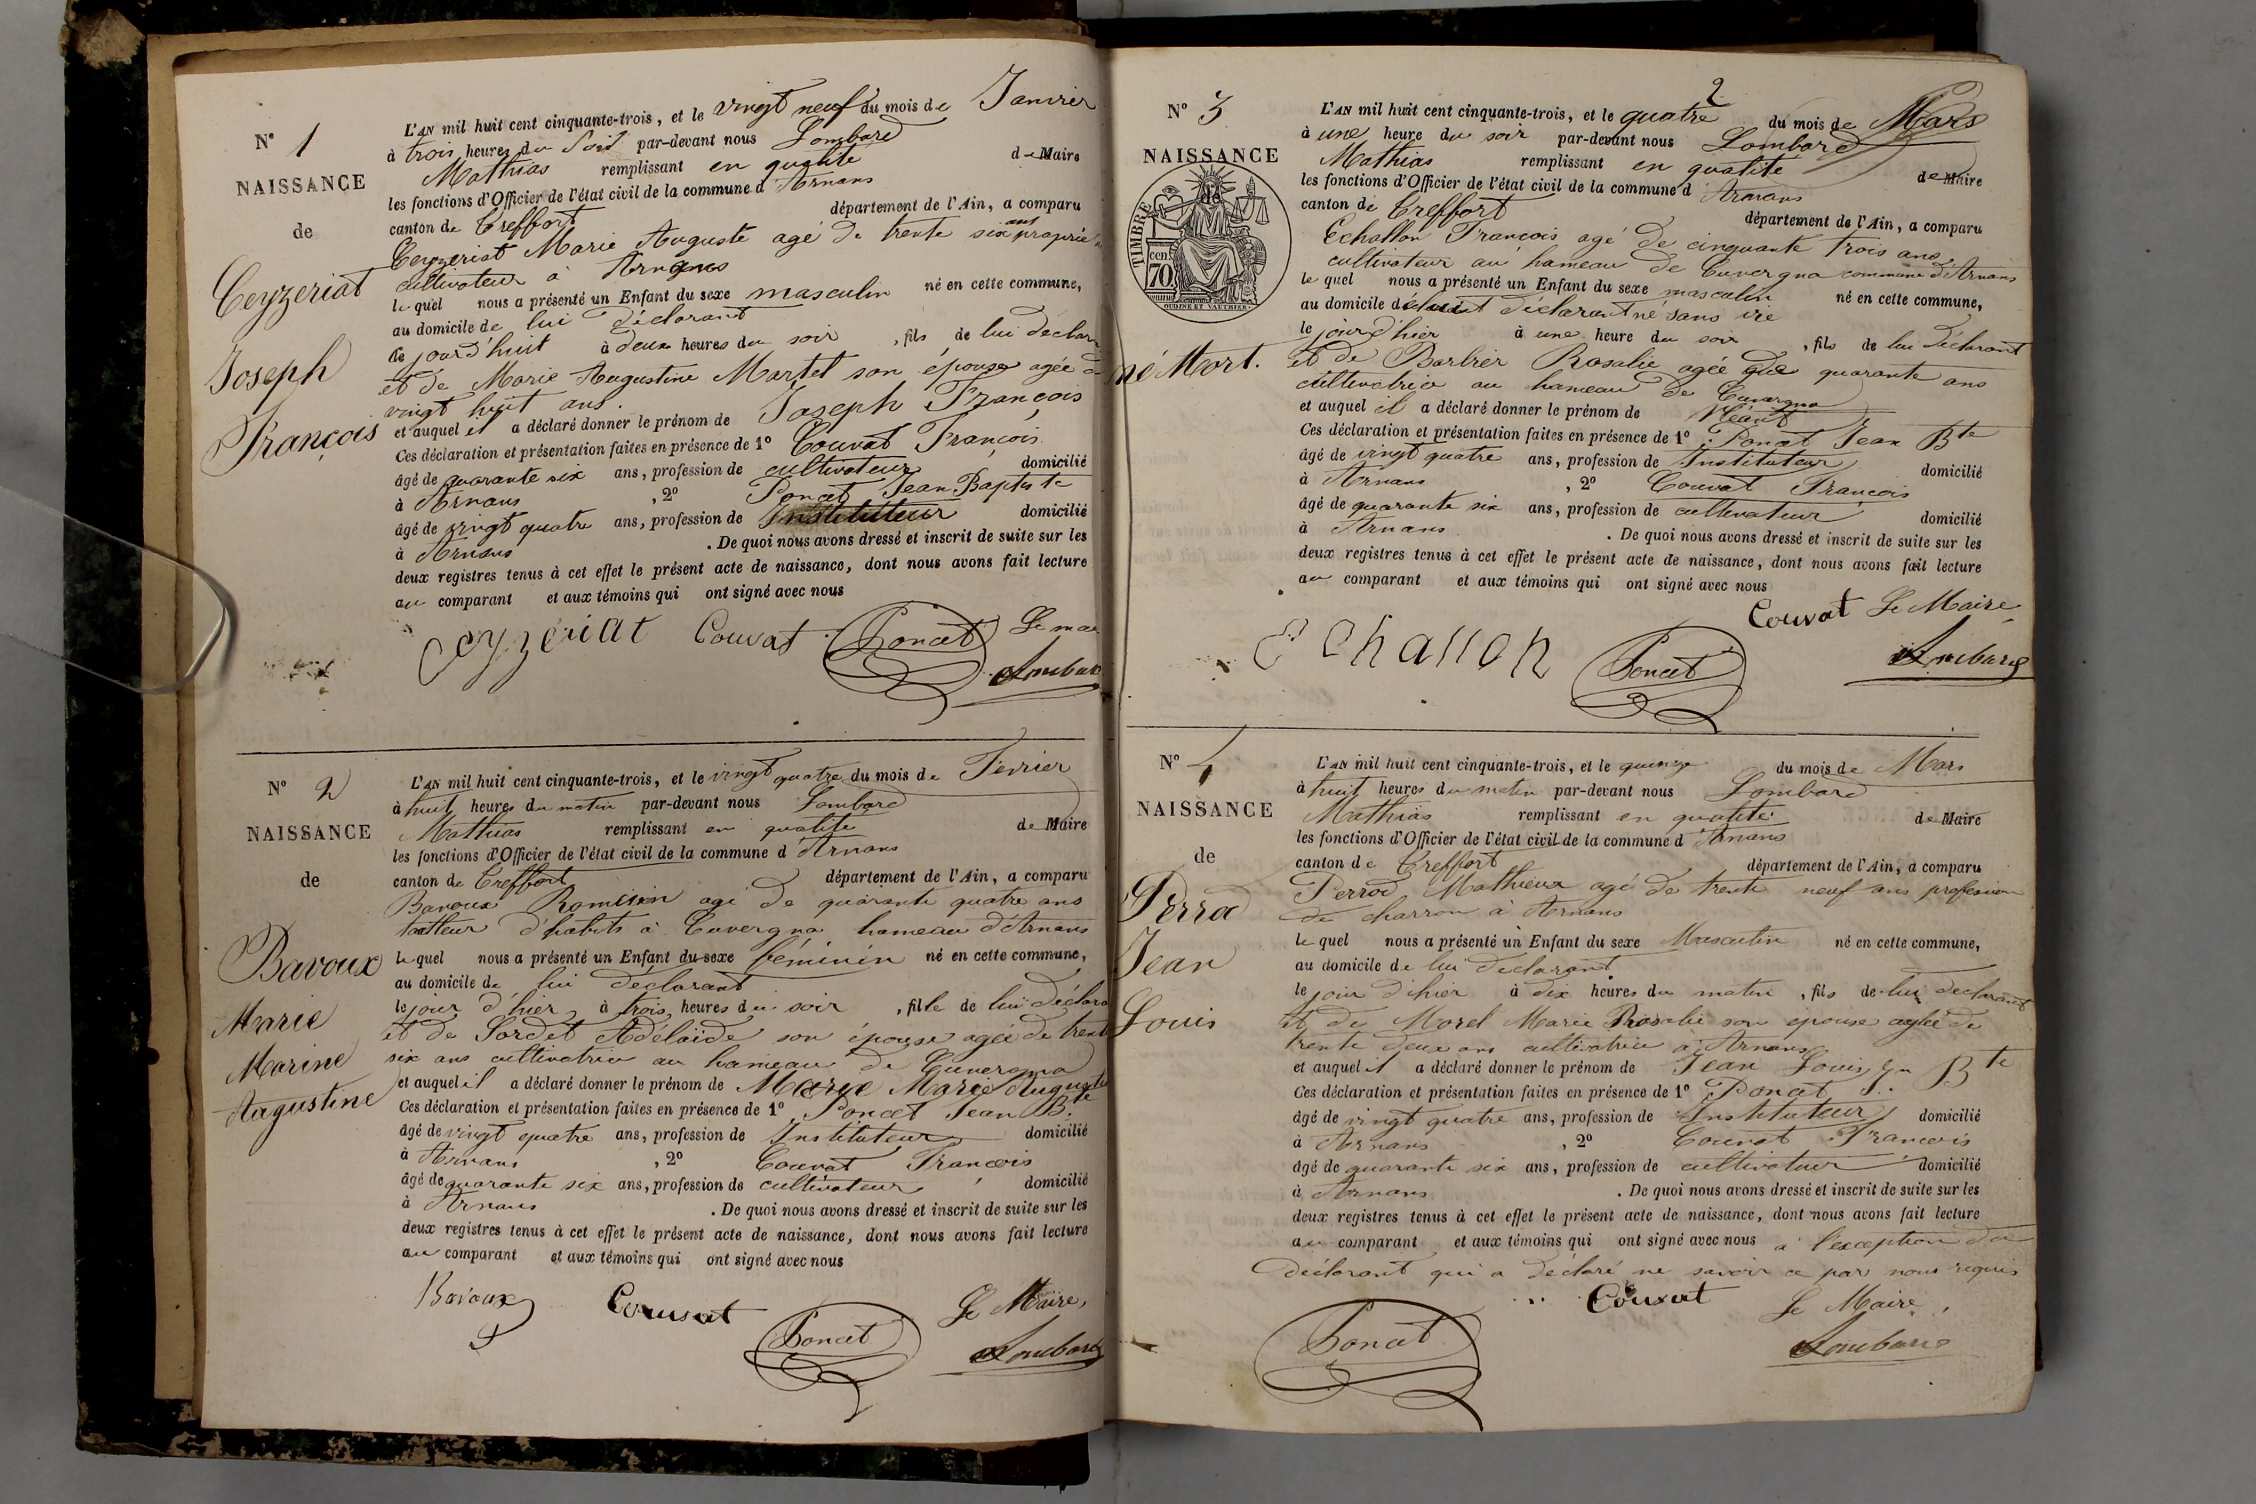 N° 1
NAISSANCE
de
Ceyzeriat
Joseph
François
L'AN mil huit cent cinquante-trois, et le vingt neuf du mois de Janvier
à trois heures du soir par-devant nous Lombard
Mathias remplissant en qualité de Maire
les fonctions d'Officier de l'état civil de la commune d'Arnans
canton de Treffort département de l'Ain, a comparu
Ceyzeriat Marie Auguste agé de trente six ans
cultivateur à Arnans
le quel nous a présenté un Enfant du sexe masculin né en cette commune,
au domicile de lui déclarant
le jourd'huit à deux heures du soir, fils de lui
et de Marie Augustine Martel son épouse agée
vingt huit ans.
et auquel il a déclaré donner le prénom de Joseph François
Ces déclaration et présentation faites en présence de 1° Couvat François
âgé de quarante six ans, profession de cultivateur domicilié
à Arnans, 2° Poncet Jean Baptiste
âgé de vingt quatre ans, profession de Instituteur domicilié
à Arnans. De quoi nous avons dressé et inscrit de suite sur les
deux registres tenus à cet effet le présent acte de naissance, dont nous avons fait lecture
au comparant et aux témoins qui ont signé avec nous
Ceyzeriat Couvat Poncet Le
Lombard
N° 2
NAISSANCE
de
Bavoux
Marie
Marine
Augustine
L'AN mil huit cent cinquante-trois, et le vingt quatre du mois de Fevrier
à huit heures du matin par-devant nous Lombard
Mathias remplissant en qualité de Maire
les fonctions d'Officier de l'état civil de la commune d'Arnans
canton de Treffort département de l'Ain, a comparu
Bavoux agé de quarante quatre ans
tailleur d'habits à Cuvergna hameau d'Arnans
le quel nous a présenté un Enfant du sexe féminin né en cette commune,
au domicile de lui déclarant
le jour d'hier à trois heures du soir, fille de lui
et de Sordet Adélaïde son épouse agée de
six ans cultivatrice au hameau de Cuvergna
et auquel il a déclaré donner le prénom de Marie
Ces déclaration et présentation faites en présence de 1° Poncet Jean Bte
âgé de vingt quatre ans, profession de Instituteur domicilié
à Arnans, 2° Couvat François
âgé de quarante six ans, profession de cultivateur domicilié
à Arnans. De quoi nous avons dressé et inscrit de suite sur les
deux registres tenus à cet effet le présent acte de naissance, dont nous avons fait lecture
au comparant et aux témoins qui ont signé avec nous
Bavoux Couvat Poncet Le Maire,
Lombard
2
N° 3
NAISSANCE
de
TIMBRE
70 cen.
OUDINE ET VAUTHIER
né Mort.
L'AN mil huit cent cinquante-trois, et le quatre du mois de Mars
à une heure du soir par-devant nous Lombard
Mathias remplissant en qualité de Maire
les fonctions d'Officier de l'état civil de la commune d'Arnans
canton de Treffort département de l'Ain, a comparu
Echallon François agé de cinquante trois ans
cultivateur au hameau de Cuvergna commune d'Arnans
le quel nous a présenté un Enfant du sexe masculin né en cette commune,
au domicile déclarant né sans vie
le jour d'hier à une heure du soir, fils de lui déclarant
et de Barbier Rosalie agée de quarante ans
cultivatrice au hameau de Cuvergna
et auquel il a déclaré donner le prénom de Néant
Ces déclaration et présentation faites en présence de 1° Poncet Jean Bte
âgé de vingt quatre ans, profession de Instituteur domicilié
à Arnans, 2° Couvat François
âgé de quarante six ans, profession de cultivateur domicilié
à Arnans. De quoi nous avons dressé et inscrit de suite sur les
deux registres tenus à cet effet le présent acte de naissance, dont nous avons fait lecture
au comparant et aux témoins qui ont signé avec nous
Couvat Le Maire
Echallon Poncet Lombard
N° 4
NAISSANCE
de
Perrod
Jean
Louis
L'AN mil huit cent cinquante-trois, et le quinze du mois de Mars
à huit heures du matin par-devant nous Lombard
Mathias remplissant en qualité de Maire
les fonctions d'Officier de l'état civil de la commune d'Arnans
canton de Treffort département de l'Ain, a comparu
Perrod Mathieux agé de trente neuf ans profession
de charron à Arnans
le quel nous a présenté un Enfant du sexe Masculin né en cette commune,
au domicile de lui déclarant
le jour d'hier à dix heures du matin, fils de lui déclarant
et de Morel Marie Rosalie son épouse agée de
trente deux ans cultivatrice à Arnans
et auquel il a déclaré donner le prénom de Jean Louis
Ces déclaration et présentation faites en présence de 1° Poncet J. Bte
âgé de vingt quatre ans, profession de Instituteur domicilié
à Arnans, 2° Couvat François
âgé de quarante six ans, profession de cultivateur domicilié
à Arnans. De quoi nous avons dressé et inscrit de suite sur les
deux registres tenus à cet effet le présent acte de naissance, dont nous avons fait lecture
au comparant et aux témoins qui ont signé avec nous à l'exception du
déclarant qui a déclaré ne savoir ce par nous requis
Couvat Le Maire,
Poncet Lombard